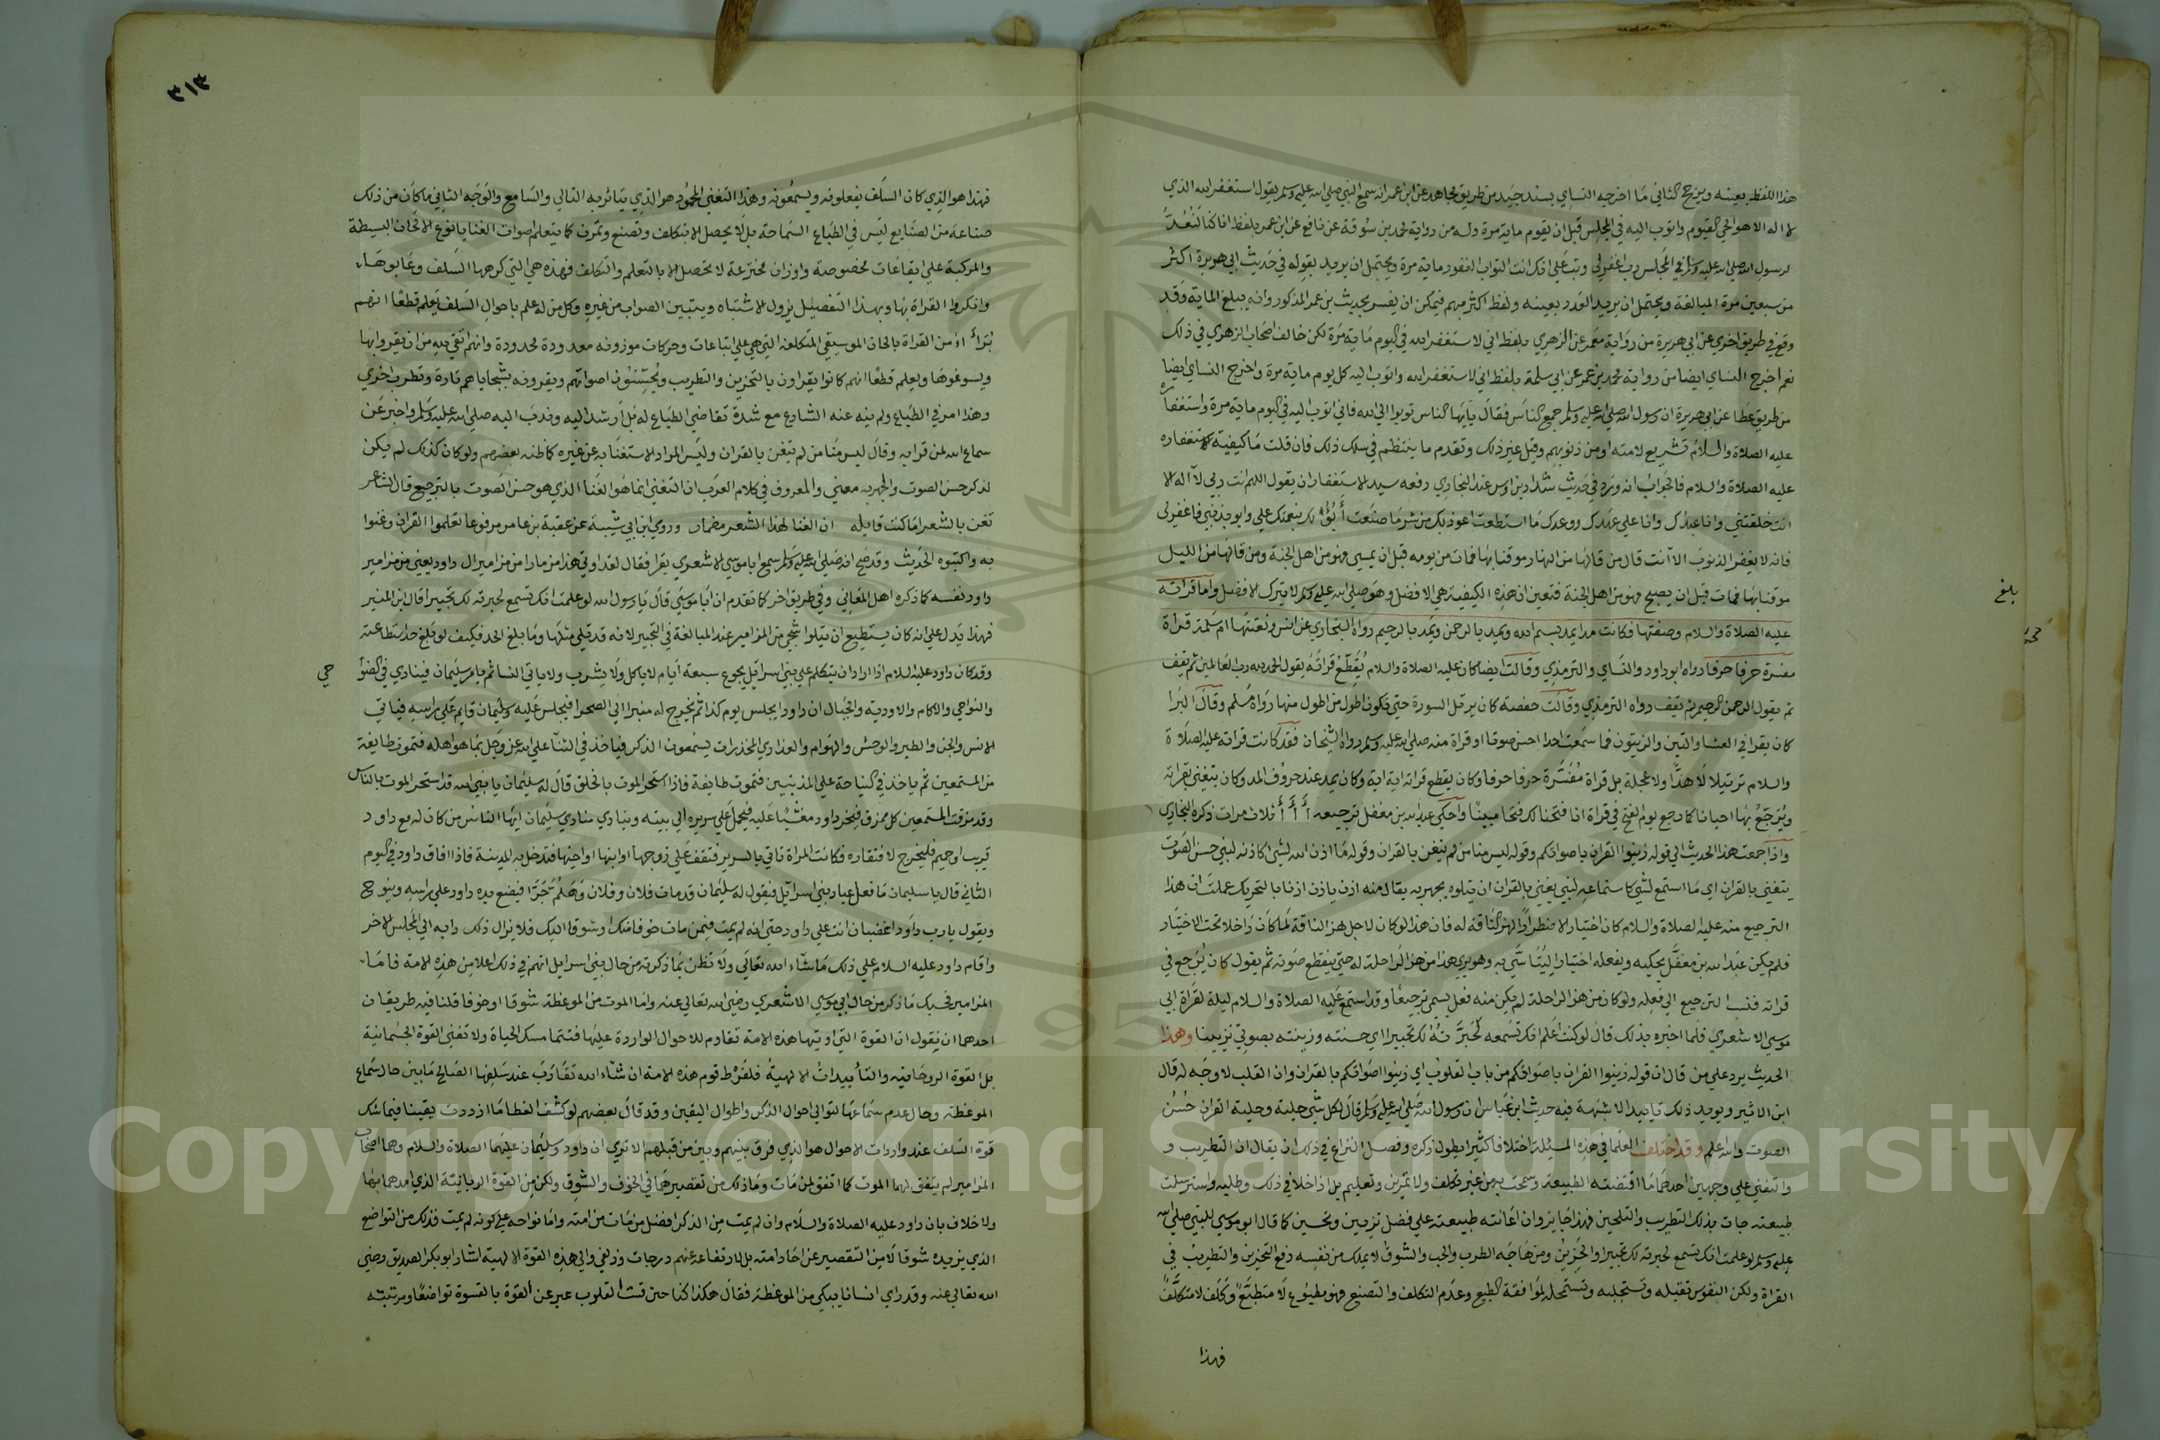 هذا اللفظ بعينه ويرجح الثاني ما اخرجه النساي بسند جيد من طريق مجاهد عن ابن عمر انه سمع النبي صلى الله عليه وسلم يقول استغفر الله الذي
لا اله الا هو الحي القيوم واتوب اليه في المجلس قبل ان يقوم ماية مرة وله من رواية محمد بن سوقة عن نافع عن ابن عمر بلفظ انا كنا لنعد
لرسول الله صلى الله عليه وسلم في المجلس رب اغفرلي وتب علي انك انت التواب الغفور ماية مرة ويحتمل ان يريد بقوله في حديث ابي هريرة اكثر
من سبعين مرة المبالغة ويحتمل ان يريد العدد بعينه ولفظ اكثر مبهم فيمكن ان يفسر بحديث بن عمر المذكور وانه يبلغ الماية وقد
وقع في طريق اخري عن ابي هريرة من رواية معمر عن الزهري بلفظ اني لاستغفر الله في اليوم ماية مرة لكن خالف اصحاب الزهري في ذلك
نعم اخرج النساي ايضا من رواية محمد بن عمرو عن ابي سلمة بلفظ اني لاستغفر الله واتوب اليه كل يوم ماية مرة واخرج النساي ايضا
من طريق عطا عن ابي هريرة ان رسول الله صلى الله عليه وسلم جمع الناس فقال يا ايها الناس توبوا الي الله فاني اتوب اليه في اليوم ماية مرة واستغفاره
عليه الصلاة والسلام تشريع لامته او من ذنوبهم وقيل غير ذلك وتقدم ما ينتظم في سلك ذلك فان قلت ما كيفية استغفاره
عليه الصلاة والسلام فالجواب انه ورد في حديث شداد بن اوس عند البخاري رفعه سيد الاستغفار ان يقول اللهم انت ربي لا اله الا
انت خلقتني وانا عبدك وانا علي عهدك ووعدك ما استطعت اعوذ بك من شر ما صنعت ابوء لك بنعمتك علي وابو بذنبي فاغفر لي
فانه لا يغفر الذنوب الا انت قال من قالها من النهار موقنا بها فمات من يومه قبل ان يمسي فهو من اهل الجنة ومن قالها من الليل
موقنا بها فمات قبل ان يصبح فهو من اهل الجنة فتعين ان هذه الكيفية هي الافضل وهو صلى الله عليه وسلم لا يترك الافضل واما قراته
عليه الصلاة والسلام وصفتها فكانت مدا يمد بسم الله ويمد بالرحمن ويمد بالرحيم رواه البخاري عن انس ونعتتها ام سلمة قراة
مفسرة حرفا حرفا رواه ابو داود والنساي والترمذي وقالت ايضا كان عليه الصلاة والسلام يقطع قراته يقول الحمد لله رب العالمين ثم يقف
ثم يقول الرحمن الرحيم ثم يقف رواه الترمذي وقالت حفصة كان يرتل السورة حتي تكون اطول من اطول منها رواه مسلم وقال البرا
كان يقرا في العشا والتين والزيتون فما سمعت احدا احسن صوتا او قراة منه صلى الله عليه وسلم رواه الشيخان فقد كانت قراته عليه الصلاة
والسلام ترتيلا لا هذا ولا عجلة بل قراة مفسرة حرفا حرفا وكان يقطع قراته اية اية وكان يمد عند حروف المد وكان يتغني بقراته
ويرجع بها احيانا كما رجع يوم الفتح في قراة انا فتحنا لك فتحا مبينا وحكي عبد الله بن مغفل ترجيعه أ أ أ ثلاث مرات ذكره البخاري
واذا جمعت هذا الحديث الي قوله زينوا القران باصواتكم وقوله ليس منا من لم يتغن بالقران وقوله ما اذن الله لشي كاذنه لنبي حسن الصوت
يتغني بالقران اي ما استمع لشي كاستماعه لنبي يغني بالقران ان يتلوه يجهر به يقال منه اذن ياذن اذنا بالتحريك علمت ان هذا
الترجيع منه عليه الصلاة والسلام كان اختيارا لا اضطرارا لهز الناقة له فان هذا لو كان لاجل هز الناقة لما كان داخلا تحت الاختيار
فلم يكن عبد الله بن مغفل يحكيه ويفعله اختيارا ليتاسي به وهو يري هذا من هز الراحلة له حتي ينقطع صوته ثم يقول كان يرجع في
قراته فنسب الترجيع الي فعله ولو كان من هز الراحلة لم يكن منه فعل يسمي ترجيعا وقد استمع عليه الصلاة والسلام ليلة لقراة ابي
موسي الاشعري فلما اخبره بذلك قال لو كنت اعلم انك تسمعه لحبرته لك تحبيرا اي حسنته وزينته بصوتي تزيينا وهذا
الحديث يرد علي من قال ان قوله زينوا القران باصواتكم من باب المقلوب اي زينوا اصواتكم بالقران وان القلب لا وجه له قال
ابن الاثير ويويد ذلك تاييدا لا شبهة فيه حديث ابن عباس ان رسول الله صلى الله عليه وسلم قال لكل شي حلية وحلية القران حسن
الصوت والله اعلم وقد اختلف العلما في هذه المسئلة اختلافا كثيرا يطول ذكره وفصل النزاع في ذلك ان يقال ان التطريب و
والتغني علي وجهين احدهما ما اقتضته الطبيعة وسمحت به من غير تكلف ولا تمرين وتعليم بل اذا خلا في ذلك وطبعه واسترسلت
طبيعته جات بذلك التطريب والتلحين فهذا جايز وان اعانته طبيعته علي فضل تزيين وتحسين كما قال ابو موسي للنبي صلى الله
عليه وسلم لو علمت انك تسمع لحبرته لك تحبيرا والحزين ومن هاجه الطرب والحب والشوق لا يملك من نفسه دفع التحزين والتطريب في
القراة ولكن النفوس تقبله وتستجلبه وتستحليه لموافقة الطبع وعدم التكلف والتصنع فهو مطبوع لا متطبع وكلف لا متكلف
فهذا
بلغ
٣١٣
فهذا هو الذي كان السلف يفعلونه ويسمعونه وهذا التغني المحمود هو الذي يتاثر به التالي والسامع والوجه الثاني ما كان من ذلك
صناعة من الصنايع ليس في الطباع السماحة به بل لا يحصل الا بتكلف وتصنع وتمرن كما يتعلم اصوات الغنا بانوع الالحان البسيطة
والمركبة علي ايقاعات مخصوصة واوزان مخترعة لا تحصل الا بالتعلم والتكلف فهذه هي التي كرهها السلف وعابوها
وانكروا القراة بها وبهذا التفصيل يزول الاشتباه ويتبين الصواب من غيره وكل من له علم باحوال السلف يعلم قطعا انهم
برأاء من القراة بالحان الموسيقي المتكلفة التي هي علي ايقاعات وحركات موزونة معدودة محدودة وانهم اتقي لله من ان يقروا بها
ويسوغوها ويعلم قطعا انهم كانوا يقراون بالتحزين والتطريب ويحسنون اصواتهم ويقرونه بشجاياهم تارة وتطرب اخري
وهذا امر في الطباع ولم ينه عنه الشارع مع شدة تقاضي الطباع له بل ارشد اليه وندب اليه صلى الله عليه وسلم واخبر عن
سماع الله لمن قرا به وقال ليس منا من لم يتغن بالقران وليس المراد الاستغنا به عن غيره كما ظنه بعضهم ولو كان كذلك لم يكن
لذكر حسن الصوت والجهر به معني والمعروف في كلام العرب ان التغني انما هو الغنا الذي هو حسن الصوت بالترجيع قال الشاعر
تغن بالشعر اما كنت قايله ان الغنا لهذا الشعر مضمار وروي ابن ابي شيبة عن عقبة بن عامر مرفوعا تعلموا القران وغنوا
به واكتبوه الحديث وقد صح انه صلى الله عليه وسلم سمع ابا موسي الاشعري يقرا فقال لقد اوتي هذا مزمارا من مزامير ال داود يعني من مزامير
داود نفسه كما ذكره اهل المعاني وفي طريق اخر كما تقدم ان ابا موسي قال يا رسول الله لو علمت انك تسمع لحبرته لك تحبيرا قال ابن المنير
فهذا يدل علي انه كان يستطيع ان يتلوا شجي من المزامير عند المبالغة في التحبير لانه قد تلي مثلها وما بلغ الحد فكيف لو بلغ حد استطاعته
وقد كان داود عليه السلام اذا اراد ان يتكلم علي بني اسرايل يجوع سبعة ايام لا ياكل ولا يشرب ولا ياتي النسا ثم يامر سليمان فينادي في الضوا
حي
والنواحي والاكام والاودية والجبال ان داود يجلس يوم كذا ثم يخرج له منبرا الي الصحرا فيجلس عليه وسليمان قايم علي راسه فياتي
الانس والجن والطير والوحش والهوام والعذاري المخدرات يسمعون الذكر فياخذ في الثنا علي الله عز وجل بما هو اهله فتموت طايفة
من المستمعين ثم ياخذ في النياحة علي المذنبين فتموت طايفة فاذا استحر الموت بالخلق قال له سليمان يا نبي الله قد استحر الموت بالناس
وقد مزقت المستمعين كل ممزق فيخر داود مغشيا عليه فيحمل علي سريره الي بيته وينادي منادي سليمان ايها الناس من كان له مع داود
قريب او حميم فليخرج لافتقاده فكانت المراة تاتي بالسرير فتقف علي زوجها او ابنها او اخيها فتدخل به المدينة فاذا افاق داود في اليوم
الثاني قال يا سليمان ما فعل عباد بني اسرايل فيقول له سليمان قد مات فلان وفلان وهلم جرا فيضع يده داود علي راسه وينوح
ويقول يا رب داود اغضبان انت علي داود حتي انه لم يمت فيمن مات خوفا منك وشوقا اليك فلا يزال ذلك دابه الي المجلس الاخر
واقام داود عليه السلام علي ذلك ما شاء الله تعالي ولا تظن بما ذكرته من حال بني اسرايل انهم في ذلك اعلا من هذه الامة فاما
المزامير فحسبك ما ذكر من حال ابي موسي الاشعري رضي الله تعالي عنه واما الموت من الموعظة شوقا او خوفا قلنا فيه طريقان
احدهما ان نقول ان القوة التي اوتيها هذه الامة تقاوم الاحوال الواردة عليها فتتماسك الحياة ولا تفني القوة الجسمانية
بل القوة الروحانية والتأييدات الالهية فلفرط قوم هذه الامة ان شاء الله تقارب عند سلفها الصالح ما بين حال سماع
الموعظة وحال عدم سماعها لتوالي احوال الذكر واطوال اليقين وقد قال بعضهم لو كشف الغطا ما ازددت يقينا فتماسك
قوة السلف عند واردات الاحوال هو الذي فرق بينهم وبين من قبلهم الا تري ان داود وسليمان عليهما الصلاة والسلام وهما اصحاب
المزامير لم يتفق لهما الموت كما اتفق لمن مات وما ذلك من تقصيرهما في الخوف والشوق ولكن من القوة الربانية الذي امدهما بها
ولا خلاف بان داود عليه الصلاة والسلام وان لم يمت من الذكر افضل ممن مات من امته واما نواحه علي كونه لم يمت فذلك من التواضع
الذي يزيده شوقا لا من التقصير عن احاد امته بل لارتفاعه عنهم درجات وزلفي والي هذه القوة الالهية اشار ابو بكر الصديق رضي
الله تعالي عنه وقد راي انسانا يبكي من الموعظة فقال هكذا كنا حتي قست القلوب عبر عن القوة بالقسوة تواضعا ومرتبته
Copyright © King Saud University
195